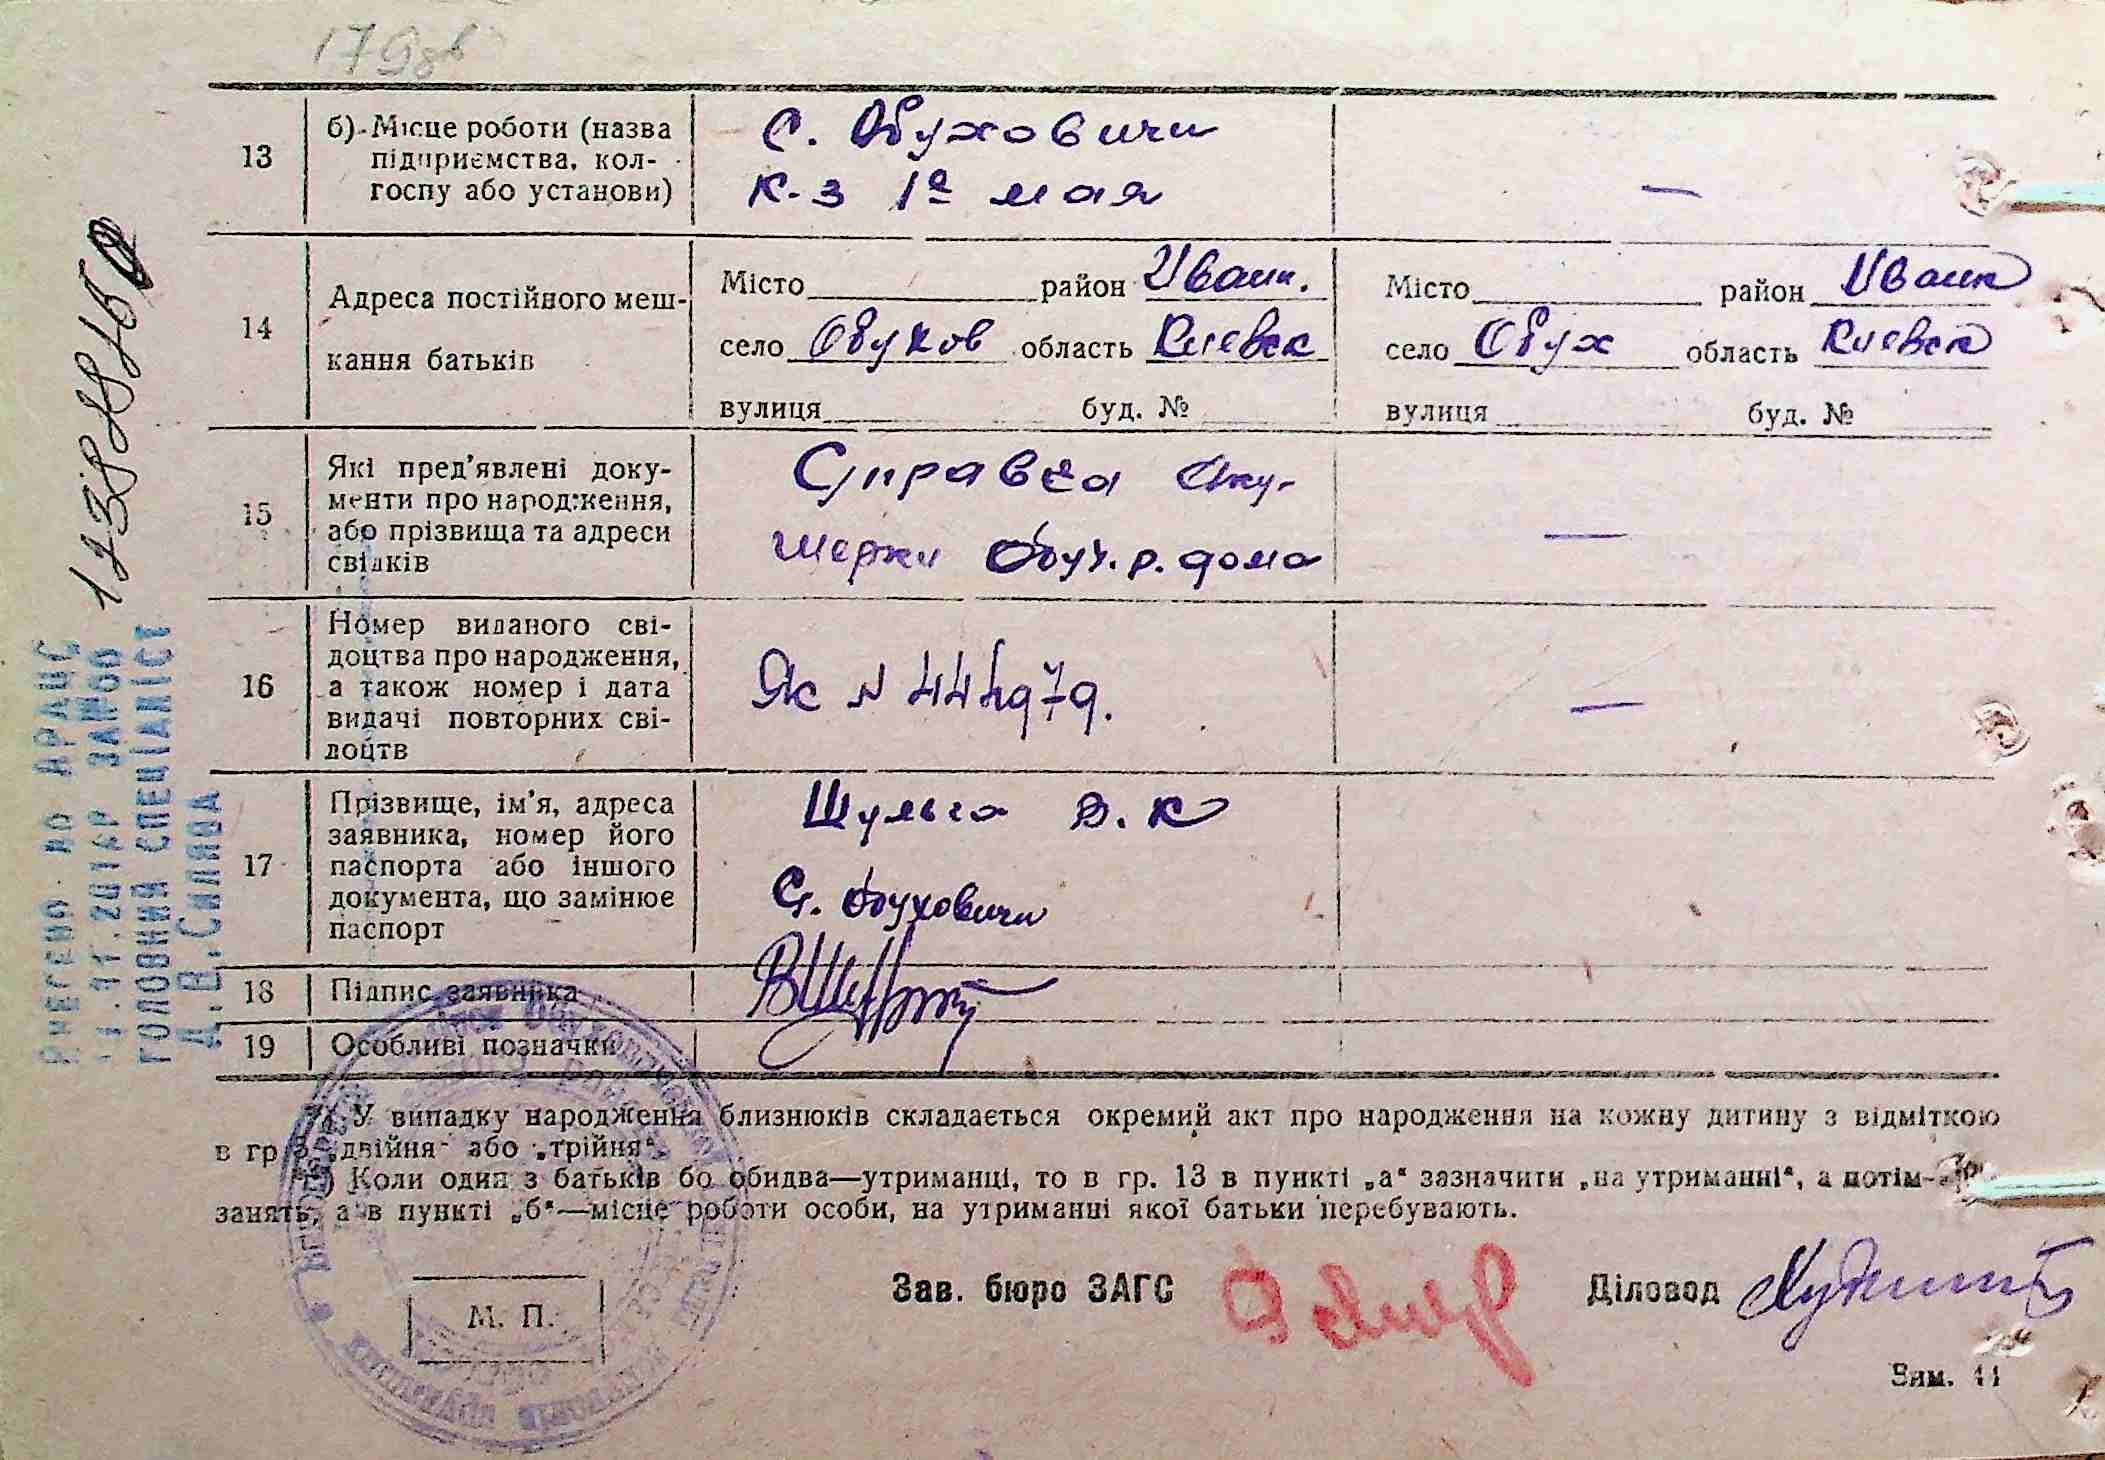 13
б) Місце роботи (назва
підприємства, кол-
госпу або установи)
С. Обуховичи
К-з 1е мая
—
14
Адреса постійного меш-
кання батьків
Місто район Иванк.
село Обухов область Киевск
вулиця буд. №
Місто район Иванк
село Обух область Киевск
вулиця буд. №
15
Які пред'явлені доку-
менти про народження,
або прізвища та адреси
свідків
Справка Аку-
шерки Обух. р. дома
—
16
Номер виданого сві-
доцтва про народження,
а також номер і дата
видачі повторних сві-
доцтв
Як N 444979.
—
17
Прізвище, ім'я, адреса
заявника, номер його
паспорта або іншого
документа, що замінює
паспорт
Шульга В. К
С. Обуховичи
18
Підпис заявника
19
Особливі позначки
У випадку народження близнюків складається окремий акт про народження на кожну дитину з відміткою
в гр. 3 „двійня“ або „трійня“.
Коли один з батьків бо обидва—утриманці, то в гр. 13 в пункті „а“ зазначити „на утриманні“, а потім—
занять, а в пункті „б“—місце роботи особи, на утриманні якої батьки перебувають.
М. П.
Зав. бюро ЗАГС
Діловод
Зам. 44
Внесено до ДРАЦС
11.2016р
ГОЛОВНИЙ СПЕЦІАЛІСТ
Д.В.Силява